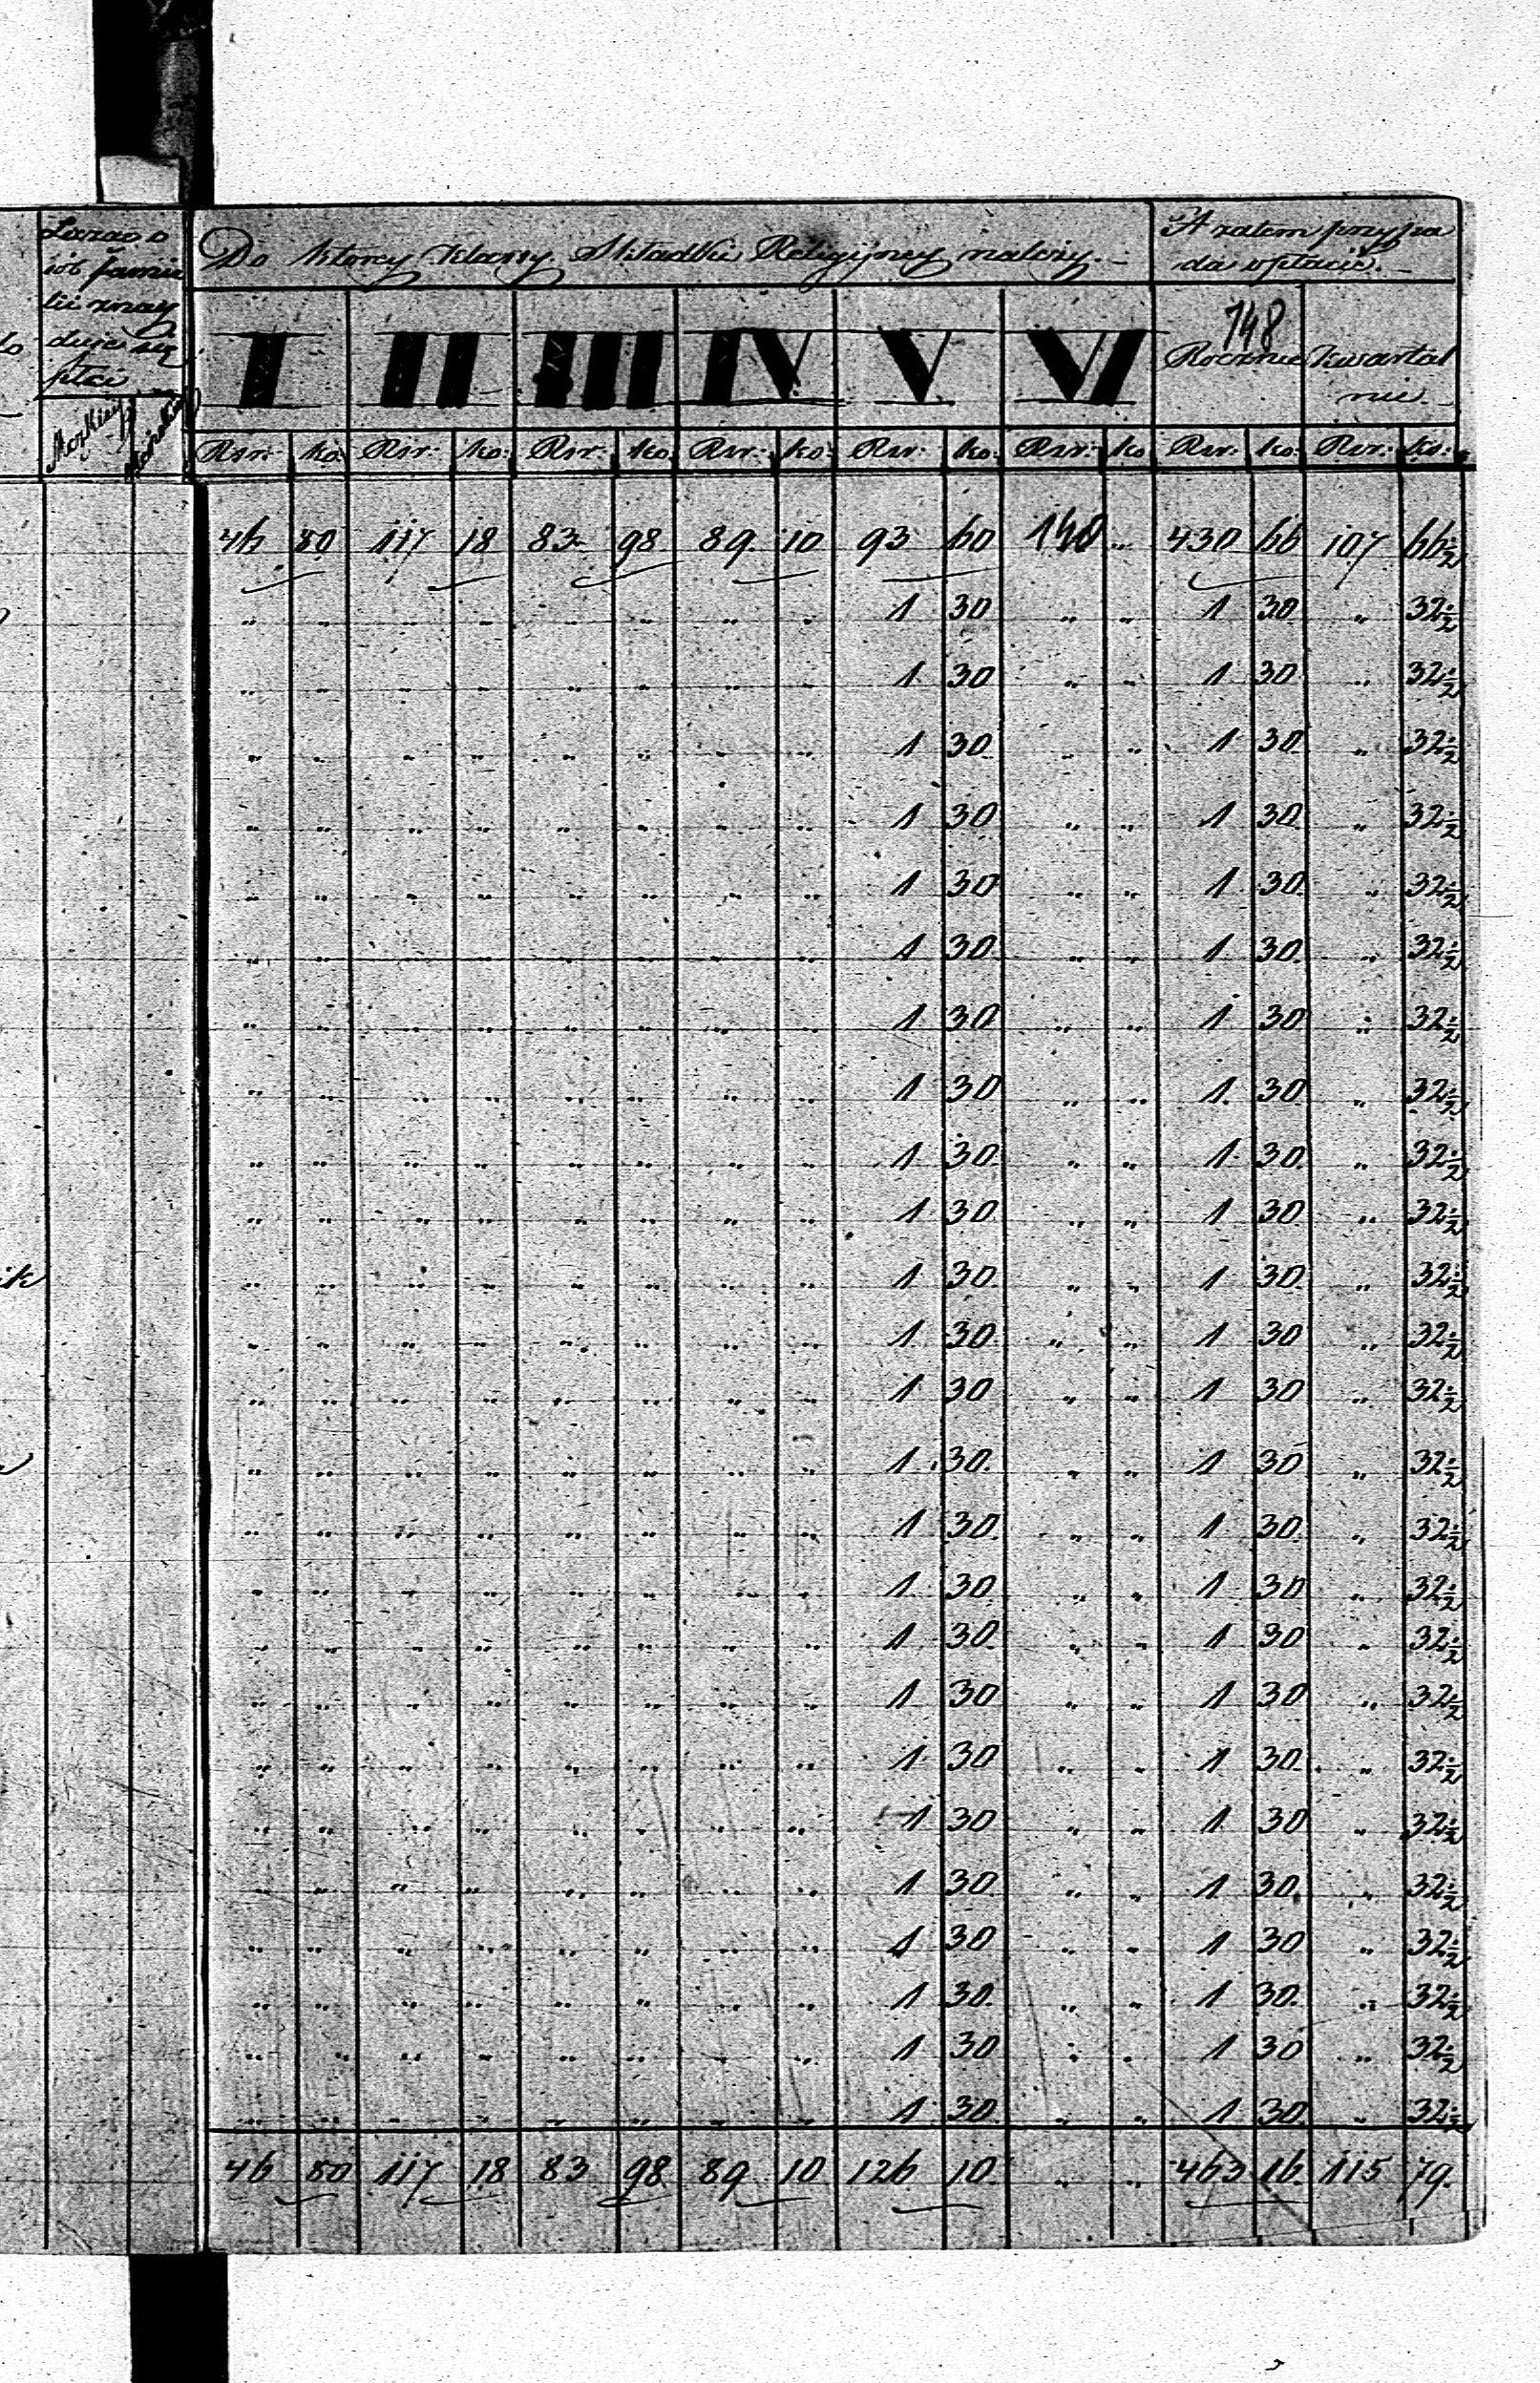 Liczba o
sób famie
lii znay
duje się
płci
Męzkiej
Do którey klassy Składki Religijney należy.
A zatem przypa
da opłacić.
148
I II III IV V VI Rocznie Kwartal
nie
Rsr: ko: Rsr: ko: Rsr: ko: Rsr: ko: Rsr: ko: Rsr: ko: Rsr: ko: Rsr: ko:
46 80 117 18 83 98 89 10 93 60 148 „ 430 66 107 66½
„ „ „ „ „ „ „ „ 1 30 „ „ 1 30 „ 32½
„ „ „ „ „ „ „ „ 1 30 „ „ 1 30 „ 32½
„ „ „ „ „ „ „ „ 1 30 „ „ 1 30 „ 32½
„ „ „ „ „ „ „ „ 1 30 „ „ 1 30 „ 32½
„ „ „ „ „ „ „ „ 1 30 „ „ 1 30 „ 32½
„ „ „ „ „ „ „ „ 1 30 „ „ 1 30 „ 32½
„ „ „ „ „ „ „ „ 1 30 „ „ 1 30 „ 32½
„ „ „ „ „ „ „ „ 1 30 „ „ 1 30 „ 32½
„ „ „ „ „ „ „ „ 1 30 „ „ 1 30 „ 32½
„ „ „ „ „ „ „ „ 1 30 „ „ 1 30 „ 32½
ik „ „ „ „ „ „ „ „ 1 30 „ „ 1 30 „ 32½
„ „ „ „ „ „ „ „ 1 30 „ „ 1 30 „ 32½
„ „ „ „ „ „ „ „ 1 30 „ „ 1 30 „ 32½
„ „ „ „ „ „ „ „ 1 30 „ „ 1 30 „ 32½
„ „ „ „ „ „ „ „ 1 30 „ „ 1 30 „ 32½
„ „ „ „ „ „ „ „ 1 30 „ „ 1 30 „ 32½
„ „ „ „ „ „ „ „ 1 30 „ „ 1 30 „ 32½
„ „ „ „ „ „ „ „ 1 30 „ „ 1 30 „ 32½
„ „ „ „ „ „ „ „ 1 30 „ „ 1 30 „ 32½
„ „ „ „ „ „ „ „ 1 30 „ „ 1 30 „ 32½
„ „ „ „ „ „ „ „ 1 30 „ „ 1 30 „ 32½
„ „ „ „ „ „ „ „ 1 30 „ „ 1 30 „ 32½
„ „ „ „ „ „ „ „ 1 30 „ „ 1 30 „ 32½
„ „ „ „ „ „ „ „ 1 30 „ „ 1 30 „ 32½
„ „ „ „ „ „ „ „ 1 30 „ „ 1 30 „ 32½
46 80 117 18 83 98 89 10 126 10 „ „ 463 16 115 79